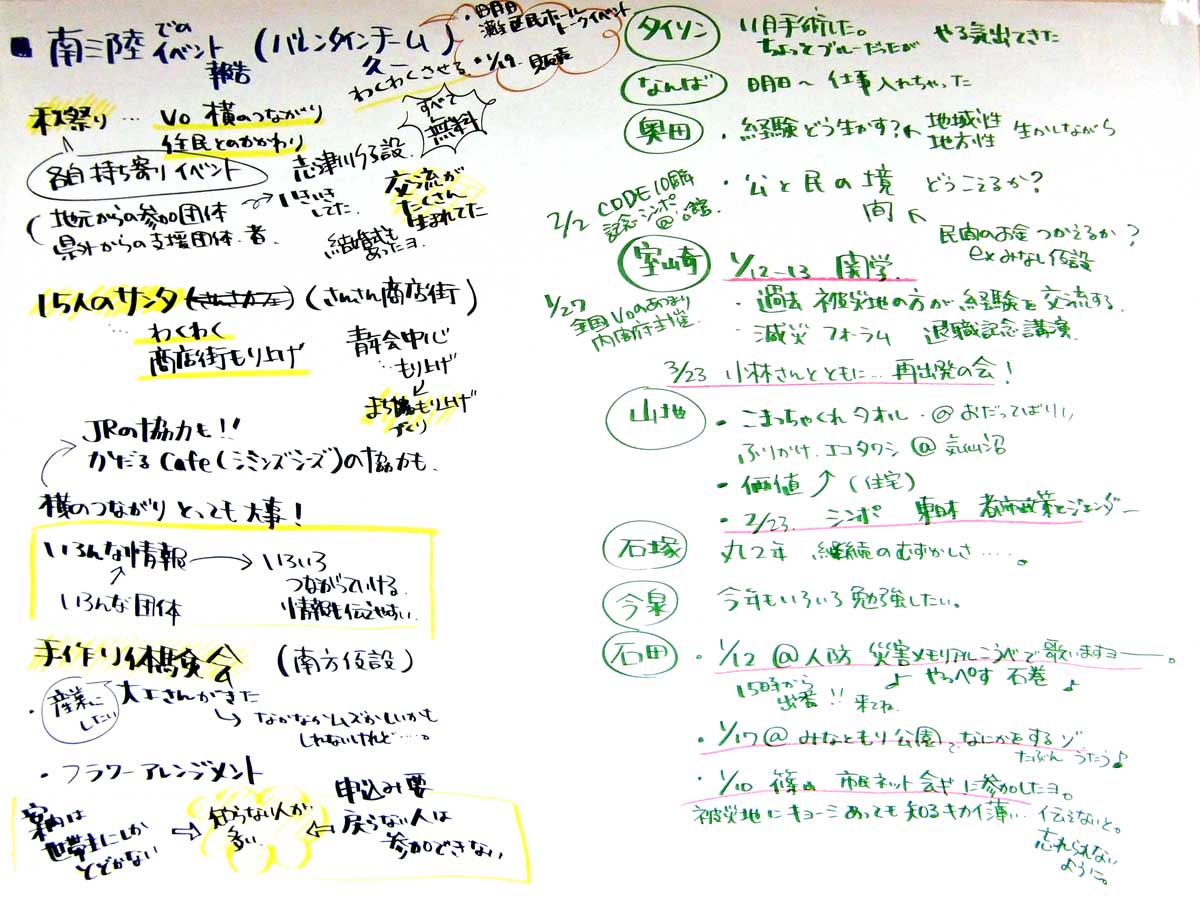 ■ 南三陸でのイベント報告 (バレンタインチーム)
久一
わくわくさせる
・明月日
灘区民ホール
トークイベント
・1/19 販売
秋祭り … Vo 横のつながり
住民とのかかわり
すべて無料
各自持ち寄りイベント
志津川仮設
(地元からの参加団体
県外からの支援団体・者
→ いきいきしてた
結婚式もあったヨ
交流がたくさん生まれてた
15人のサンタ (さんさカフェ) (さんさん商店街)
… わくわく
商店街もり上げ
青年会中心
…もり上げ
まち協もり上げ
づくり
JRの協力も!!
かたるCafe(シミンズシーズ)の協力も、
横のつながり とっても大事!
いろんな情報 → いろいろ
つながっていける
情報も伝えやすい
いろんな団体
手作り体験会 (南方仮設)
・産業にしたい
大工さんがきた
→ なかなかムズかしいかも
しれないけれど…。
・フラワーアレンジメント
案内は
世帯主にしか
とどかない
⇒ 知らない人が多い ⇐
申込み要
戻らない人は
参加できない
タイソン 11月手術した。
ちょっとブルーだったが やる気出てきた
なんば 明日~ 仕事入れちゃった
奥田 ・経験どう生かす? 地域性
地方性 生かしながら
・公と民の境 どうこえるか?
間
民間のお金つかえるか?
exみなし仮設
2/2 CODE10周年
記念シンポ
@公館
室崎 1/12-13 関学.
・過去 被災地の方が経験を交流する.
・減災フォーラム 退職記念講演.
1/27
全国Voのあつまり
内閣府主催.
3/23 小林さんとともに… 再出発の会!
山地 ・こまっちゃくれタオル・@おだってばりい
ふりかけ. エコタワシ @気仙沼
・価値↑ (住宅)
・2/23. シンポ 東日本 都市政策とジェンダー
石塚 丸2年 継続のむずかしさ….。
今泉 今年もいろいろ勉強したい。
石田 ・1/12 @人防 災害メモリアルこうべで歌いますヨー。
15時から
出番!! 来てね
♪ やっぺす 石巻 ♪
・1/17 @みなともり公園でなにかをするゾ
たぶん うたう♪
・1/10 篠山 市民ネット会ギに参加したヨ。
被災地にキョーミあっても知るキカイ薄… 伝えないと。
忘れられない
ように。